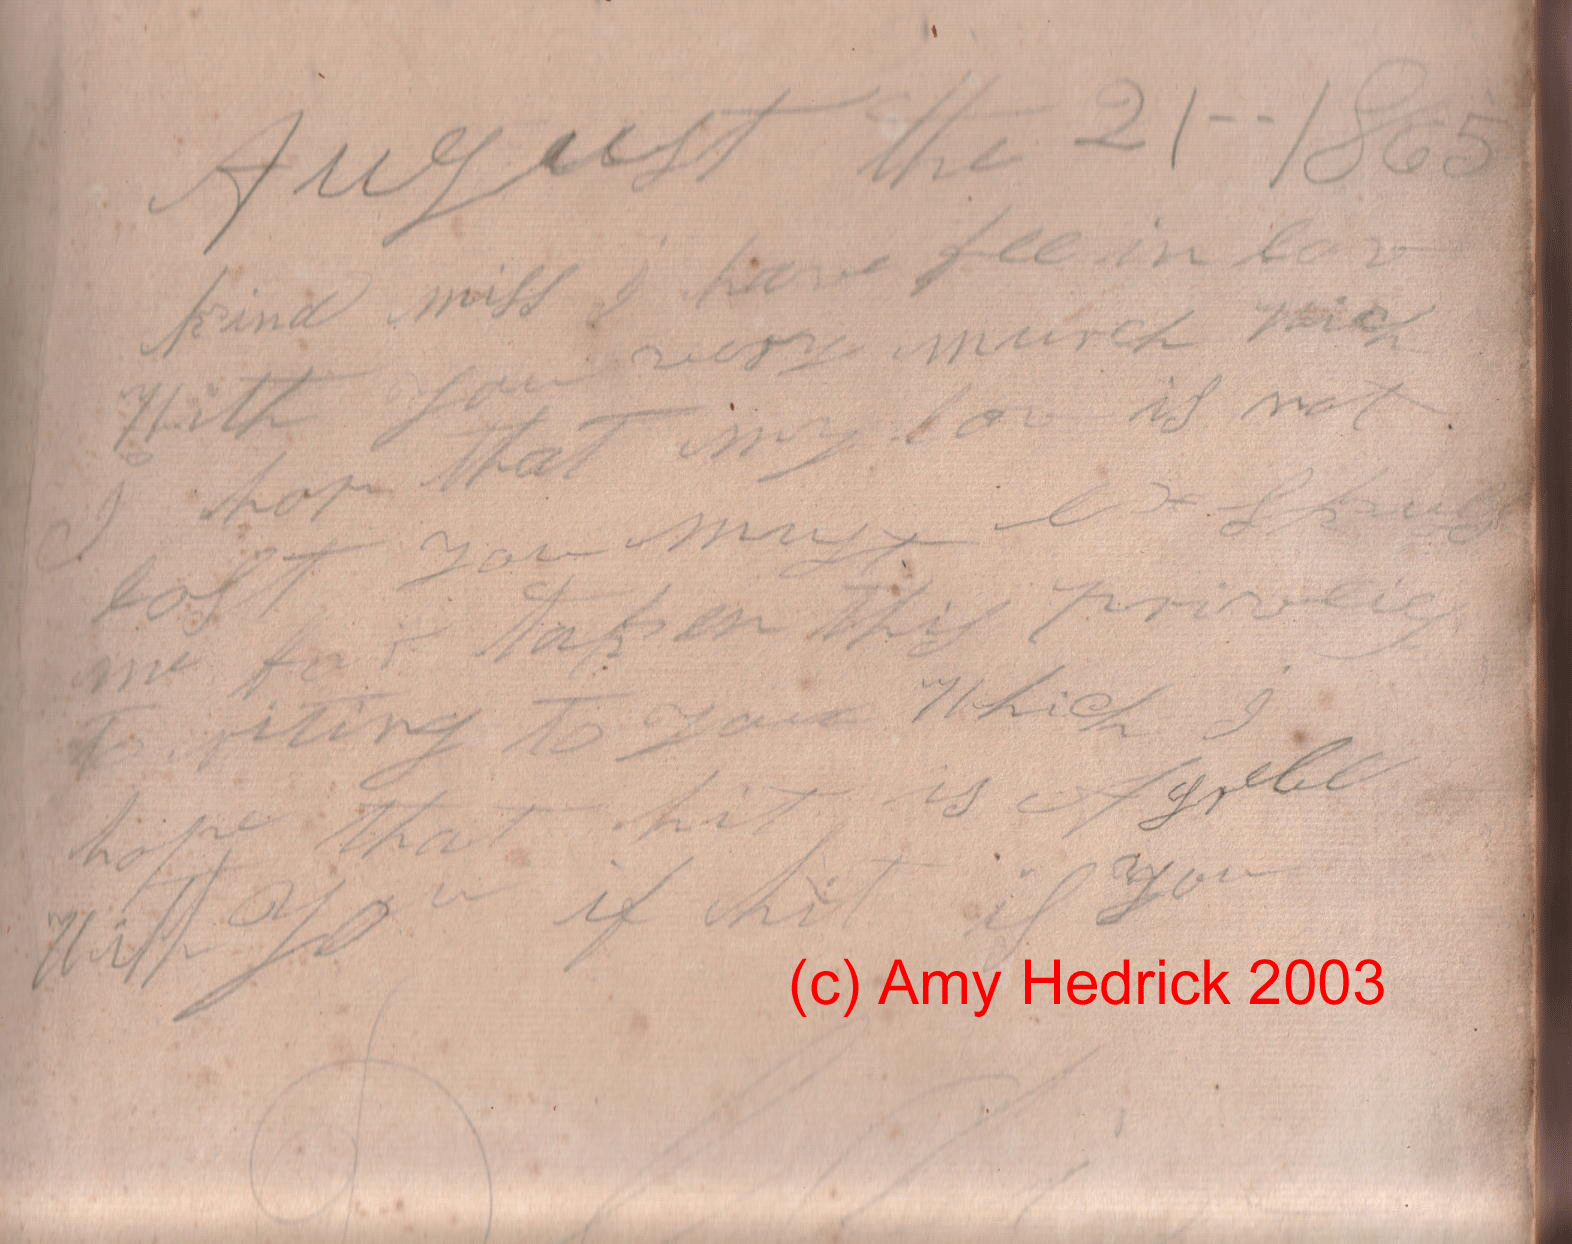 August the 21--1865
kind miss I have fell in lov
With you very murch wich
I hop that my lov is not
lost you must
me for taken this privelig
to riting to you Which I
hope that hit is Agreble
With you if hit is you
(c) Amy Hedrick 2003